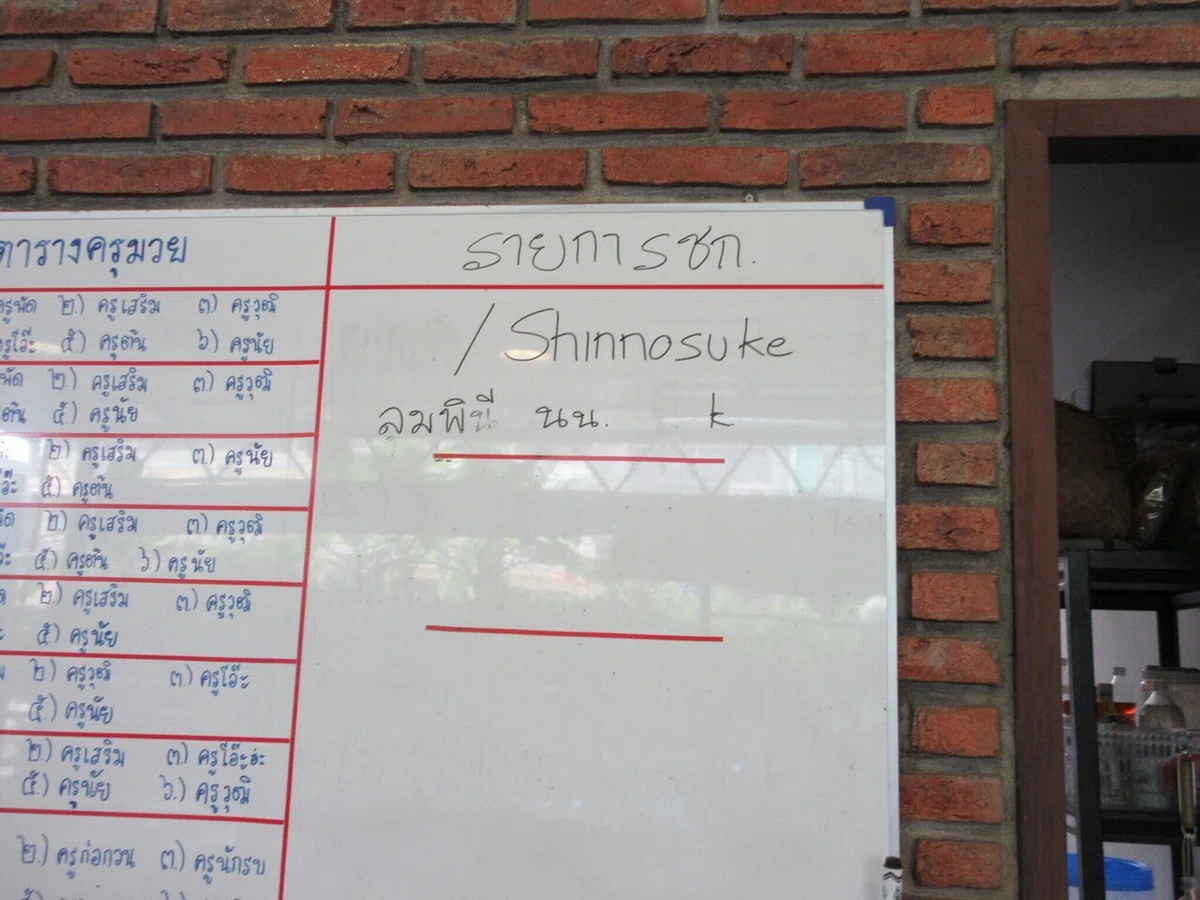 ตารางครูมวย
ครูพัด ๒.) ครูเสริม ๓) ครูวุฒิ
ครูโอ๊ะ ๕) ครูตัน ๖.) ครูนัย
๒.) ครูเสริม ๓) ครูวุฒิ
๕.) ครูนัย
๒) ครูเสริม ๓) ครูนัย
๕) ครูตัน
๒.) ครูเสริม ๓) ครูวุฒิ
๕.) ครูตัน ๖.) ครูนัย
๒.) ครูเสริม ๓.) ครูวุฒิ
๕) ครูนัย
๒.) ครูวุฒิ ๓.) ครูโอ๊ะ
๕.) ครูนัย
๒.) ครูเสริม ๓) ครูโอ๊ะ
๕.) ครูนัย ๖.) ครูวุฒิ
๒.) ครูก่อกวน ๓.) ครูนักรบ
รายการชก.
/ Shinnosuke
ลุมพินี นน. k.